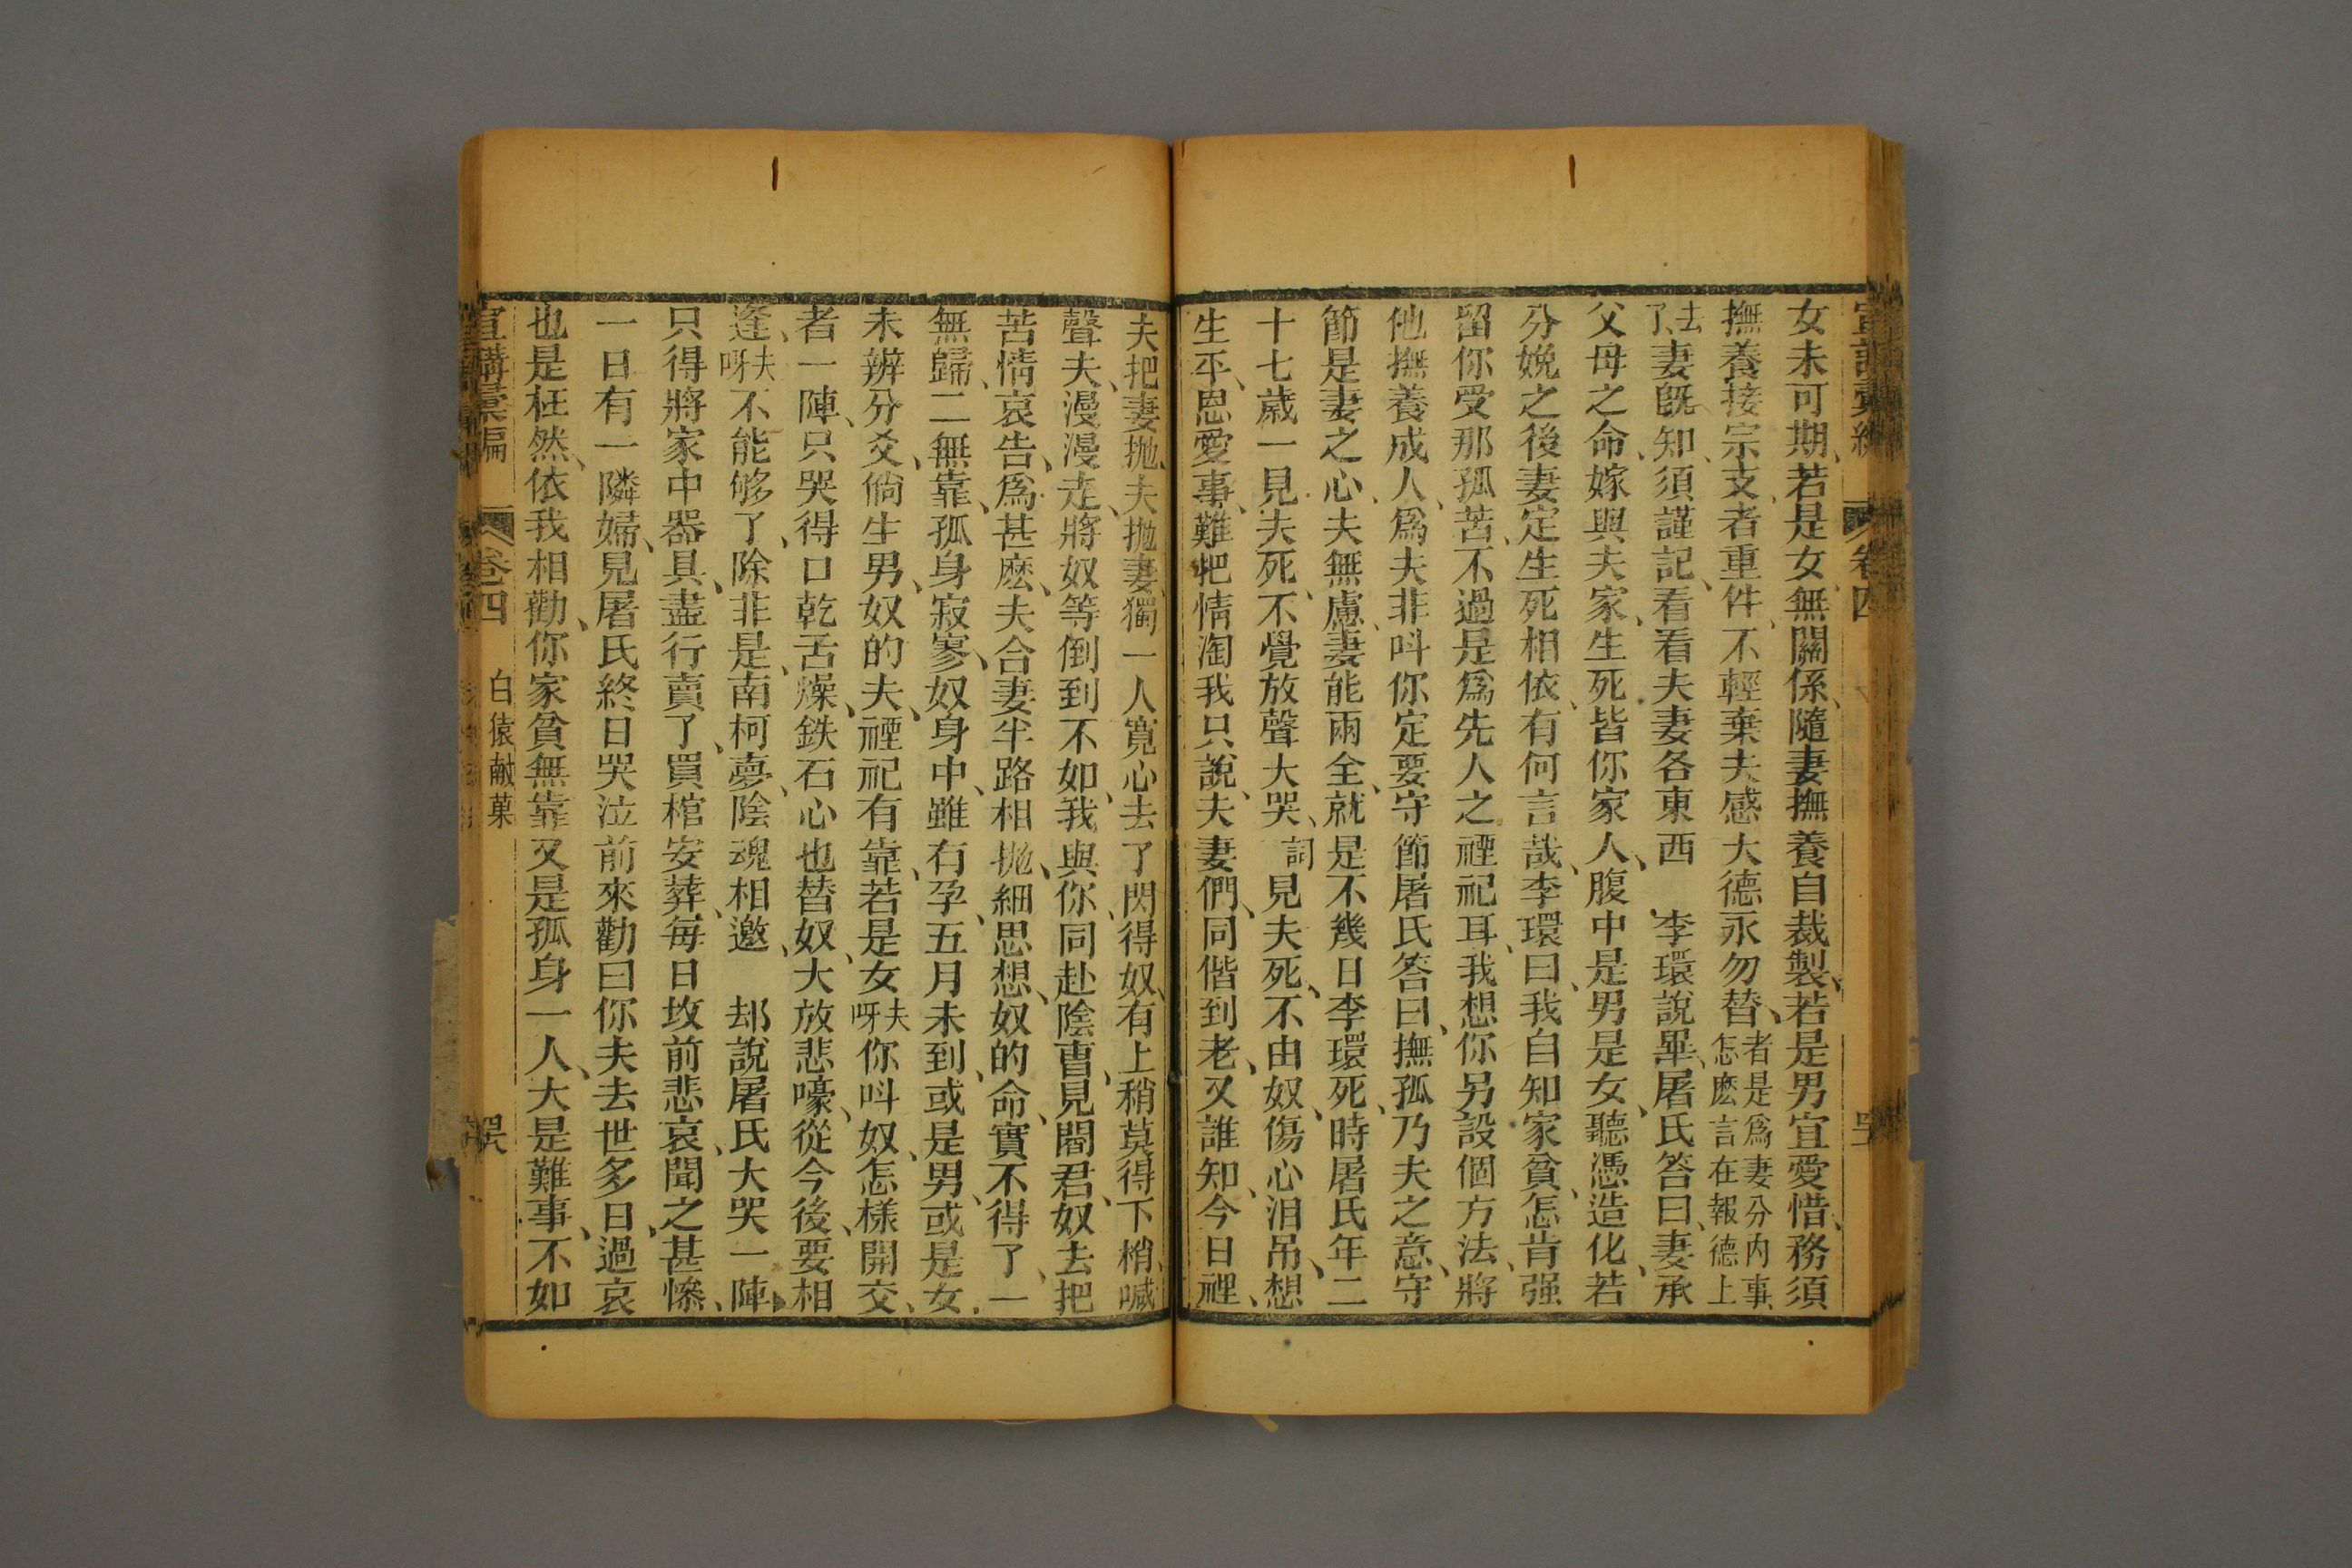 女未可期、若是女、無關係、隨妻撫養自裁製、若是男宜愛惜、務須
撫養接宗支、者重件、不輕棄夫感大德永勿替、者是為妻分内事、怎麼言在報德上
去了、妻既知、須謹記、看看夫妻各東西 李環說畢、屠氏答曰、妻承
父母之命、嫁與夫家、生死皆你家人、腹中是男是女、聽憑造化、若
分娩之後妻定生死相依、有何言哉、李環曰、我自知家貧、怎肯强
留你受那孤苦、不過是爲先人之禋祀耳、我想你另設個方法、將
他撫養成人、爲夫非呌你定要守節屠氏答曰、撫孤乃夫之意、守
節是妻之心、夫無慮、妻能兩全、就是不幾日李環死、時屠氏年二
十七歲一見夫死、不覺放聲大哭、詞見夫死、不由奴、傷心泪吊、想
生平、恩愛事、難把情淘我只說、夫妻們、同偕到老、又誰知、今日裡、
夫把妻抛、夫抛妻、獨一人寬心去了閃得奴、有上稍莫得下梢、喊
聲夫、漫漫走、將奴等倒到不如、我與你、同赴陰曺、見閻君、奴去把
苦情哀告、爲甚麽、夫合妻半路相抛、細思想、奴的命、實不得了、一
無歸、二無靠、孤身寂寥、奴身中、雖有孕、五月未到、或是男、或是女、
未辨分爻、倘生男、奴的夫、禋祀有靠、若是女夫呀你呌奴、怎樣開交、
者一陣、只哭得口乾舌燥、鉄石心也替奴、大放悲嚎、從今後、要相
逢、夫呀不能够了、除非是、南柯夢、陰魂相邀、 却說屠氏大哭一陣、
只得將家中器具、盡行賣了、買棺安葬、每日坟前悲哀、聞之甚慘、
一日有一隣婦、見屠氏終日哭泣前來勸曰你夫去世多日、過哀
也是枉然、依我相勸、你家貧無靠又是孤身一人、大是難事、不如
宣講彙編 卷四 白猿献菓